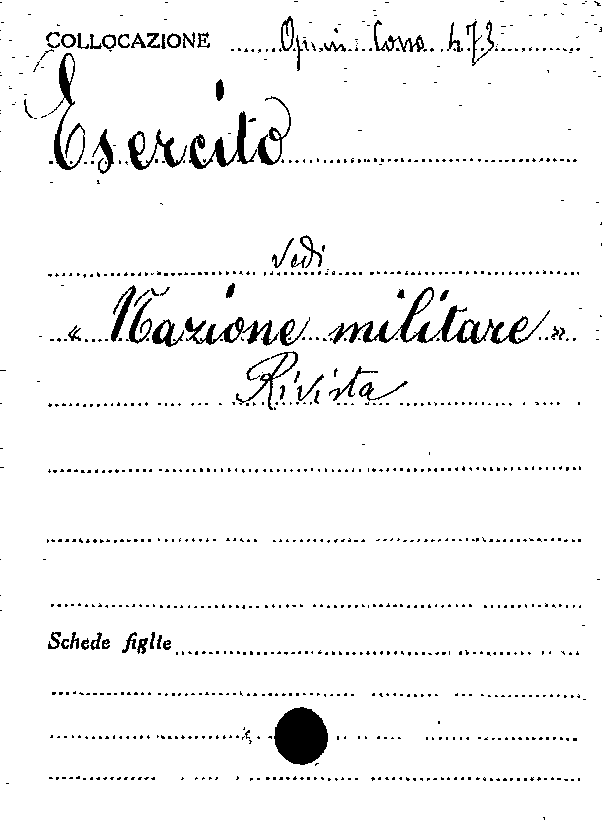 COLLOCAZIONE Opusc. Cons. 473
Esercito
vedi
« Nazione militare »
Rivista
Schede figlie